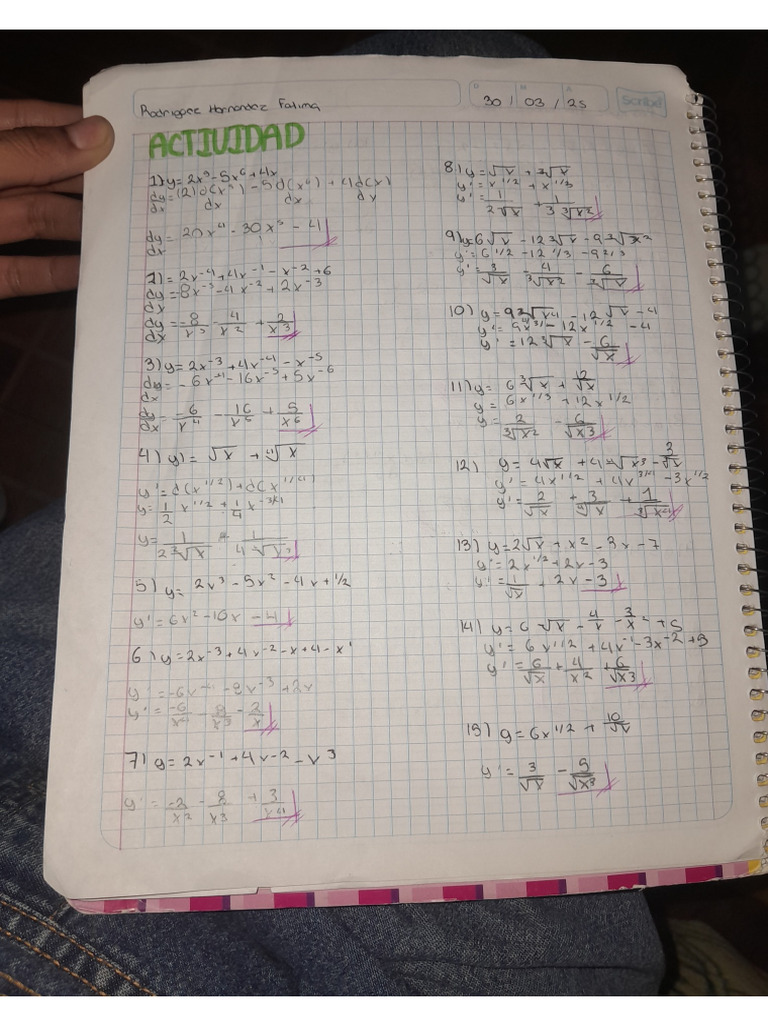 Rodriguez Hernandez Fatima
D M A
30 / 03 / 25
Scribe
ACTIVIDAD
1) y = 2x⁵ - 5x⁶ + 4x
dy/dx = (2) d(x⁵)/dx - 5 d(x⁶)/dx + 4 d(x)/dx
dy/dx = 20x⁴ - 30x⁵ - 4
2) = 2x⁻⁴ + 4x⁻¹ - x⁻² + 6
dy/dx = 8x⁻⁵ - 4x⁻² + 2x⁻³
dy/dx = -8/x⁵ - 4/x² + 2/x³
3) y = 2x⁻³ + 4x⁻⁴ - x⁻⁵
dy/dx = -6x⁻⁴ - 16x⁻⁵ + 5x⁻⁶
dy/dx = -6/x⁴ - 16/x⁵ + 5/x⁶
4) y) = √x + ⁴√x
y' = d(x^1/2) + d(x^1/4)
y = 1/2 x^1/2 + 1/4 x^-3/4
5) y = 2x³ - 5x² - 4x + 1/2
y' = 6x² - 10x - 4
6) y = 2x⁻³ + 4x⁻² - x + 4 - x¹
y' = -6x⁻⁴ - 8x⁻³ + 2x
y' = -6/x⁴ - 8/x³ - 2/x
7) y = 2x⁻¹ + 4x⁻² - x³
y' = -2/x² - 8/x³ + 3/x⁴
8) y = √x + ³√x
y' = x^1/2 + x^1/3
y' = 1/2√x + 1/3 ³√x²
9) y = 6√x - 12 ³√x - 9 ³√x²
y' = 6^1/2 - 12^1/3 - 9^2/3
y' = 3/√x - 4/³√x² - 6/³√x
10) y = 9 ³√x⁴ - 12√x - 4
y' = 9x^4/3 - 12x^1/2 - 4
y' = 12 ³√x - 6/√x
11) y = 6 ³√x + 12/√x
y = 6x^1/3 + 12x^1/2
y = 2/³√x² - 6/√x³
12) y = 4√x + 4 ⁴√x³ - 3/√x
y' = 4x^1/2 + 4x^3/4 - 3x^1/2
13) y = 2√x + x² - 3x - 7
y' = 2x^1/2 + 2x - 3
y' = 1/√x + 2x - 3
14) y = 6√x - 4/x - 3/x² + 5
y' = 6x^1/2 + 4x⁻¹ - 3x⁻² + 5
y' = 6/√x + 4/x² + 6/√x³
15) y = 6x^1/2 + 10/√x
y' = 3/√x - 5/√x³